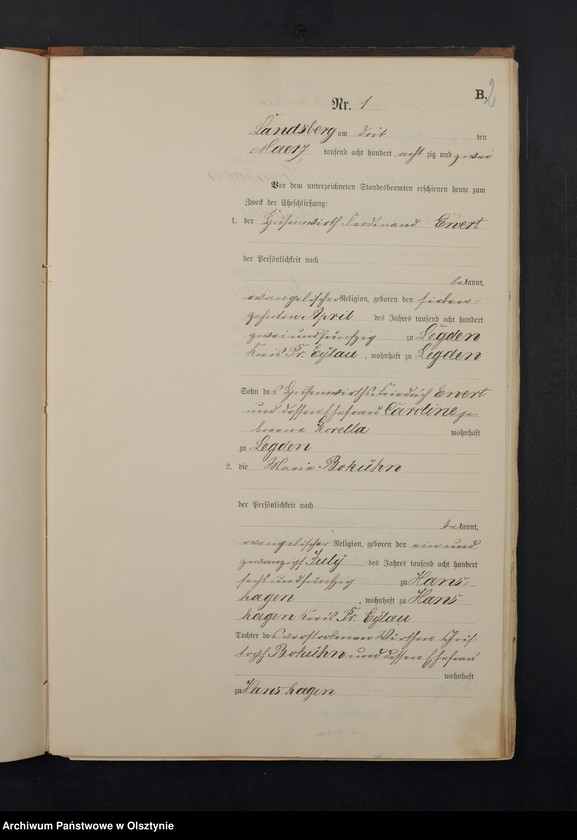 B. 2
Nr. 1
Landsberg am drit ten
Maerz tausend acht hundert acht zig und zwei
Vor dem unterzeichneten Standesbeamten erschienen heute zum
Zweck der Eheschließung:
1. der Hufenwirth Ferdinand Ewert
der Persönlichkeit nach
bekannt,
evangelischer Religion, geboren den sieben-
zehnten April des Jahres tausend acht hundert
zweiundfünfzig zu Legden
Kreis Pr. Eylau, wohnhaft zu Legden
Sohn des Hufenwirths Friedrich Ewert
und dessen Ehefrau Caroline ge-
borene Korella wohnhaft
zu Legden
2. die Maria Bokühn
der Persönlichkeit nach
bekannt,
evangelischer Religion, geboren den ein und
zwanzigst July des Jahres tausend acht hundert
sechsundfünfzig zu Hans-
hagen, wohnhaft zu Hans
hagen Kreis Pr. Eylau
Tochter des verstorbenen Wirthen Chris
toph Bokühn und dessen Ehefrau
wohnhaft
zu Hanshagen
Archiwum Państwowe w Olsztynie